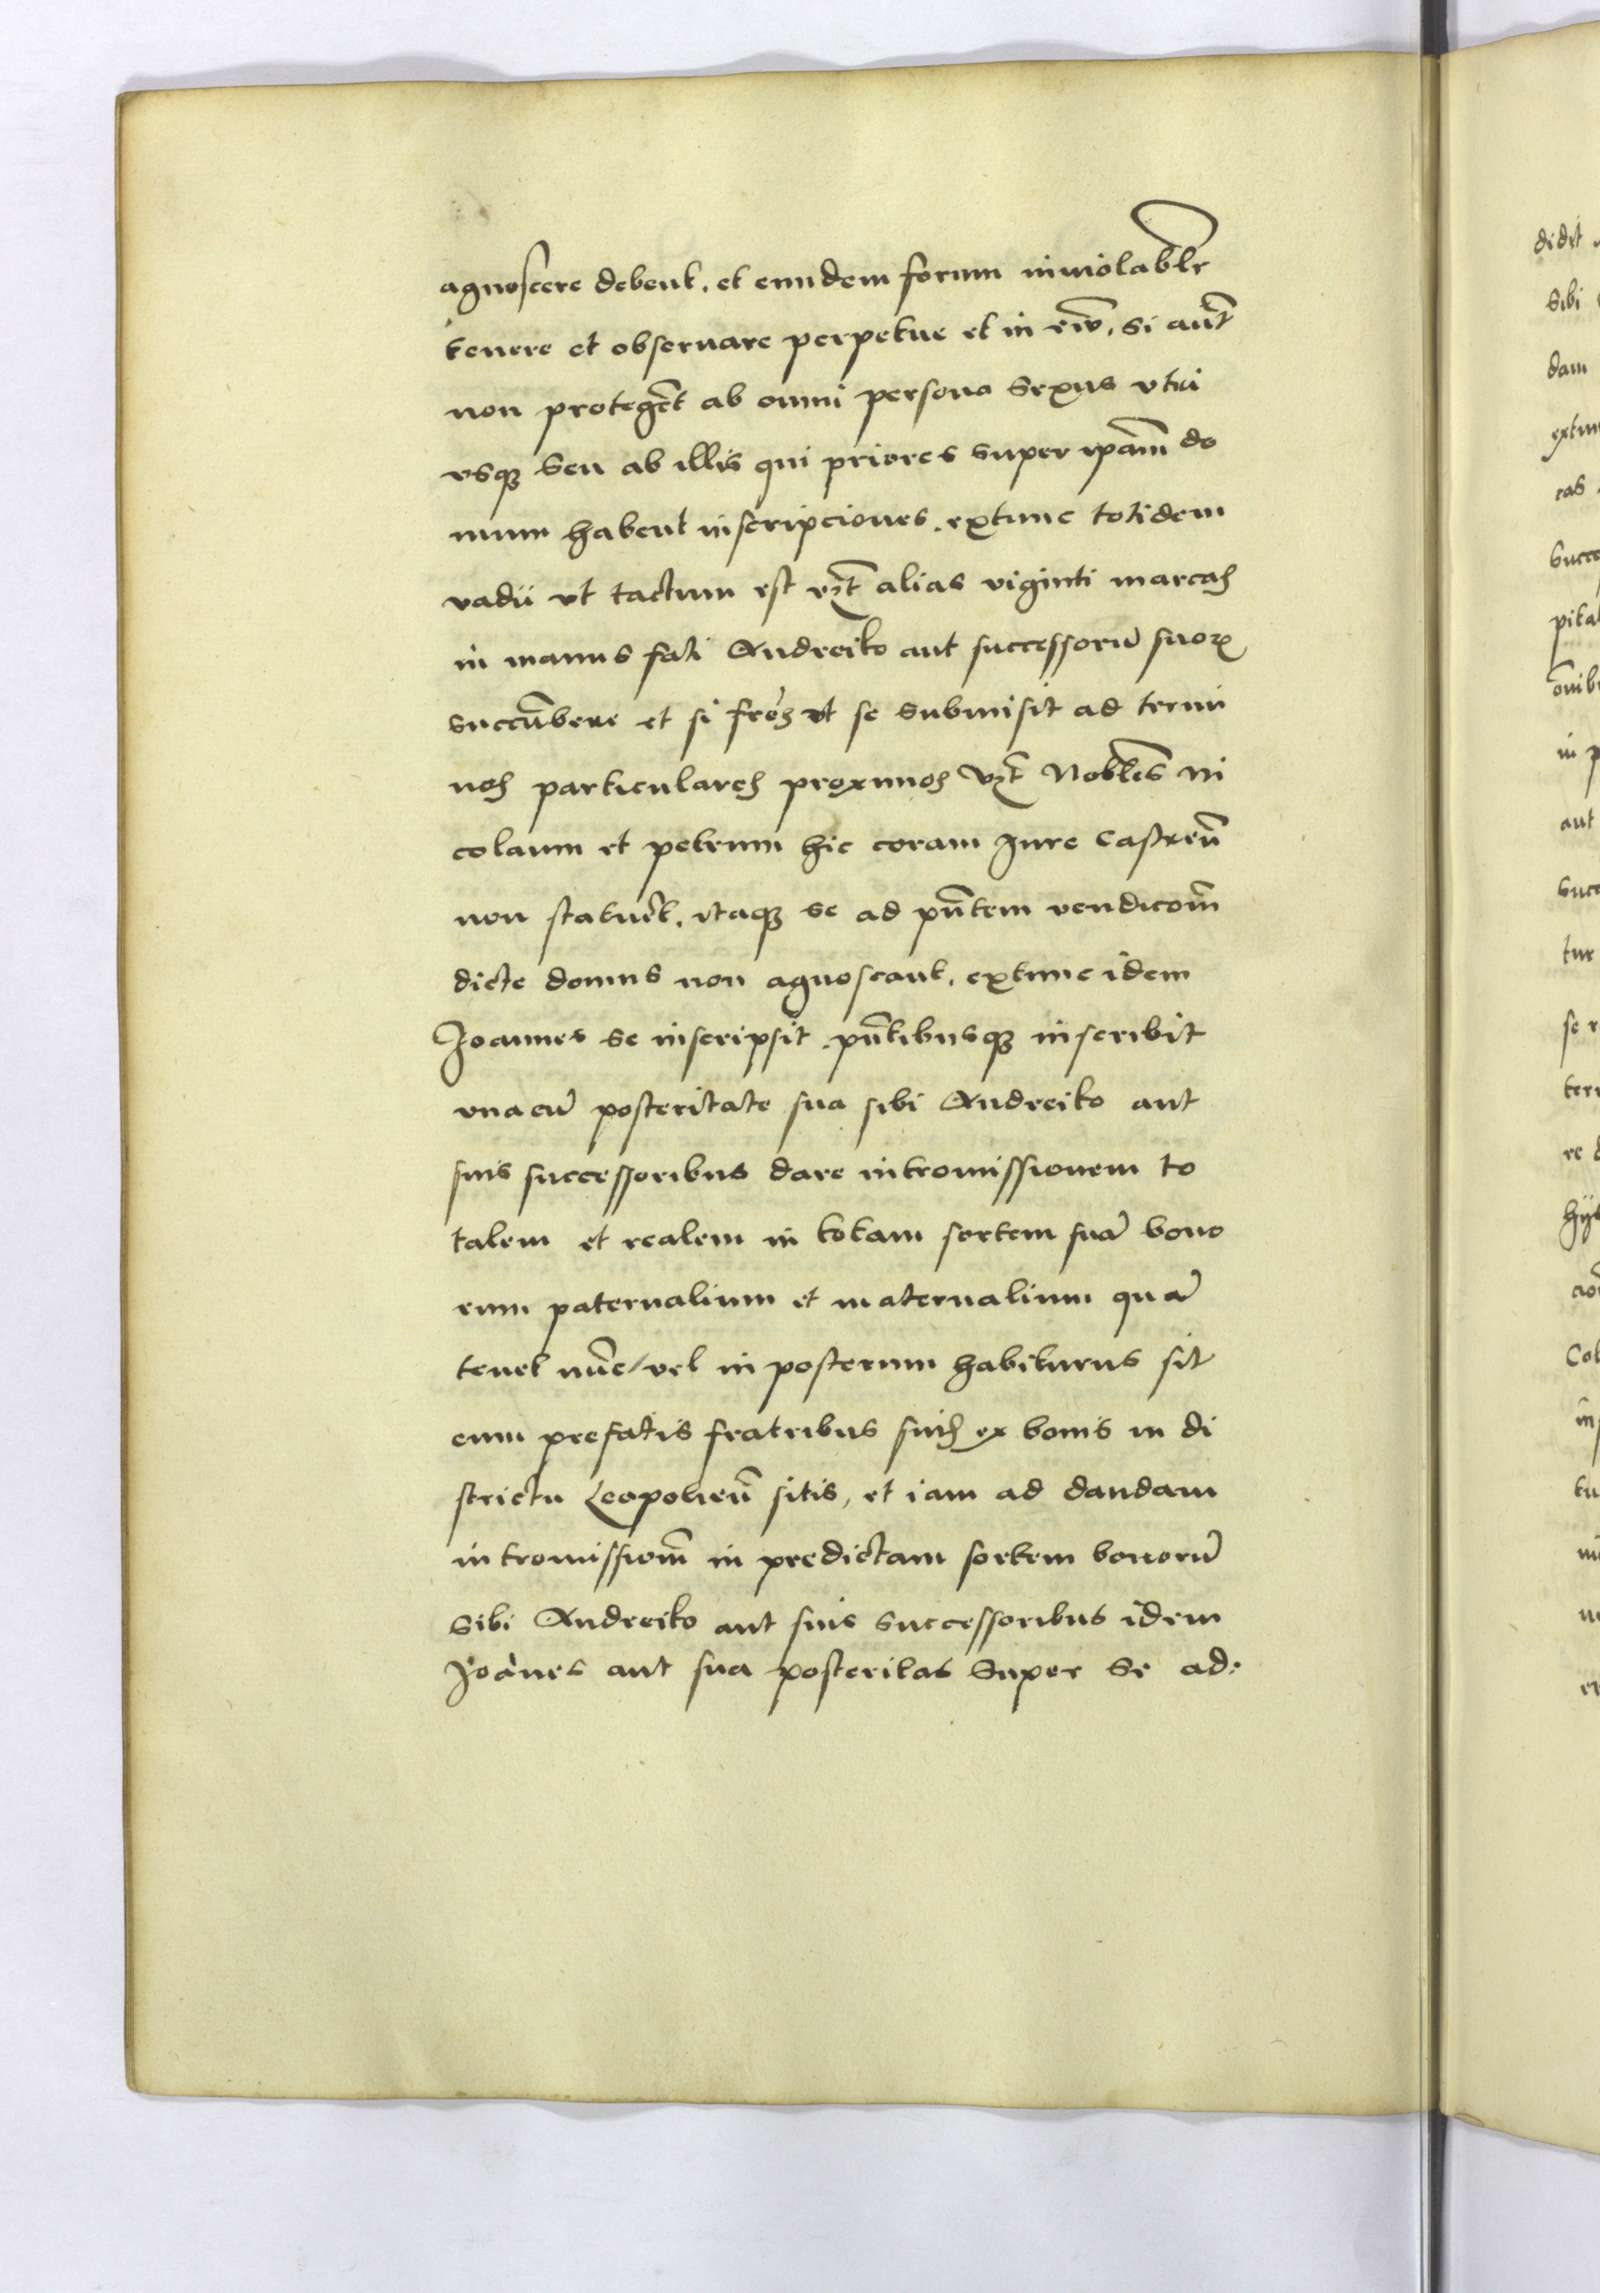 agnoscere debent. et eundem forum inviolablr
tenere et obseruare perpetue et in ewū. Si aūt
non protegēt ab omni persona Sexus vtri
usq3 Seu ab illis qui priores super ipam̄ do
mum habent inscripciones. extunc totidem
vadii vt tactum est vz̄t alias viginti marcas
in manus fati Andreiko aut successorū suorꝝ
succūbere et si frēs vt se submisit ad termi
nos particulares proximos vz̄t Nobiles Ni
colaum et petrum hic coram Jure Castreñ
non statuēt. itaq3 se ad pñtem vendicom̄
dicte domus non agnoscant. extunc idem
Joannes se inscripsit. pñtibusq3 inscribit
vnacū posteritate sua sibi Andreiko aut
suis successoribus dare intromissionem to
talem et realem in totam sortem suā bono
rum paternalium et maternalium quā
tenet nūc/ vel in posterum habiturus sit
cum prefatis fratribus suis ex bonis in di
strictu Leopolieñ sitis, et iam ad dandam
intromissiom̄ in predictam sortem bonorū
Sibi Andreiko aut suis Successoribus idem
Joānes aut sua posteritas Super Se ad:
didit
Sibi
dam
extun
eas
Succe
pita
omib
in p
aut
Succ
tur
se r
ter
re d
hys
Col